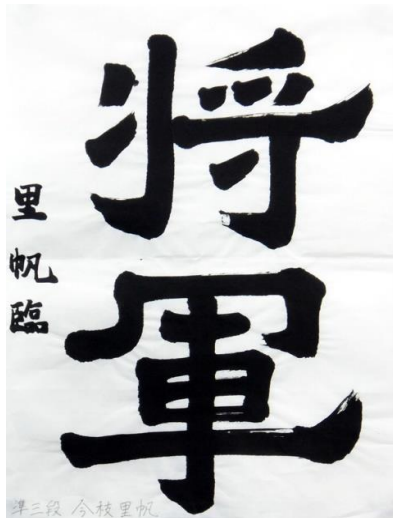 将軍
里帆臨
準三段 今枝里帆